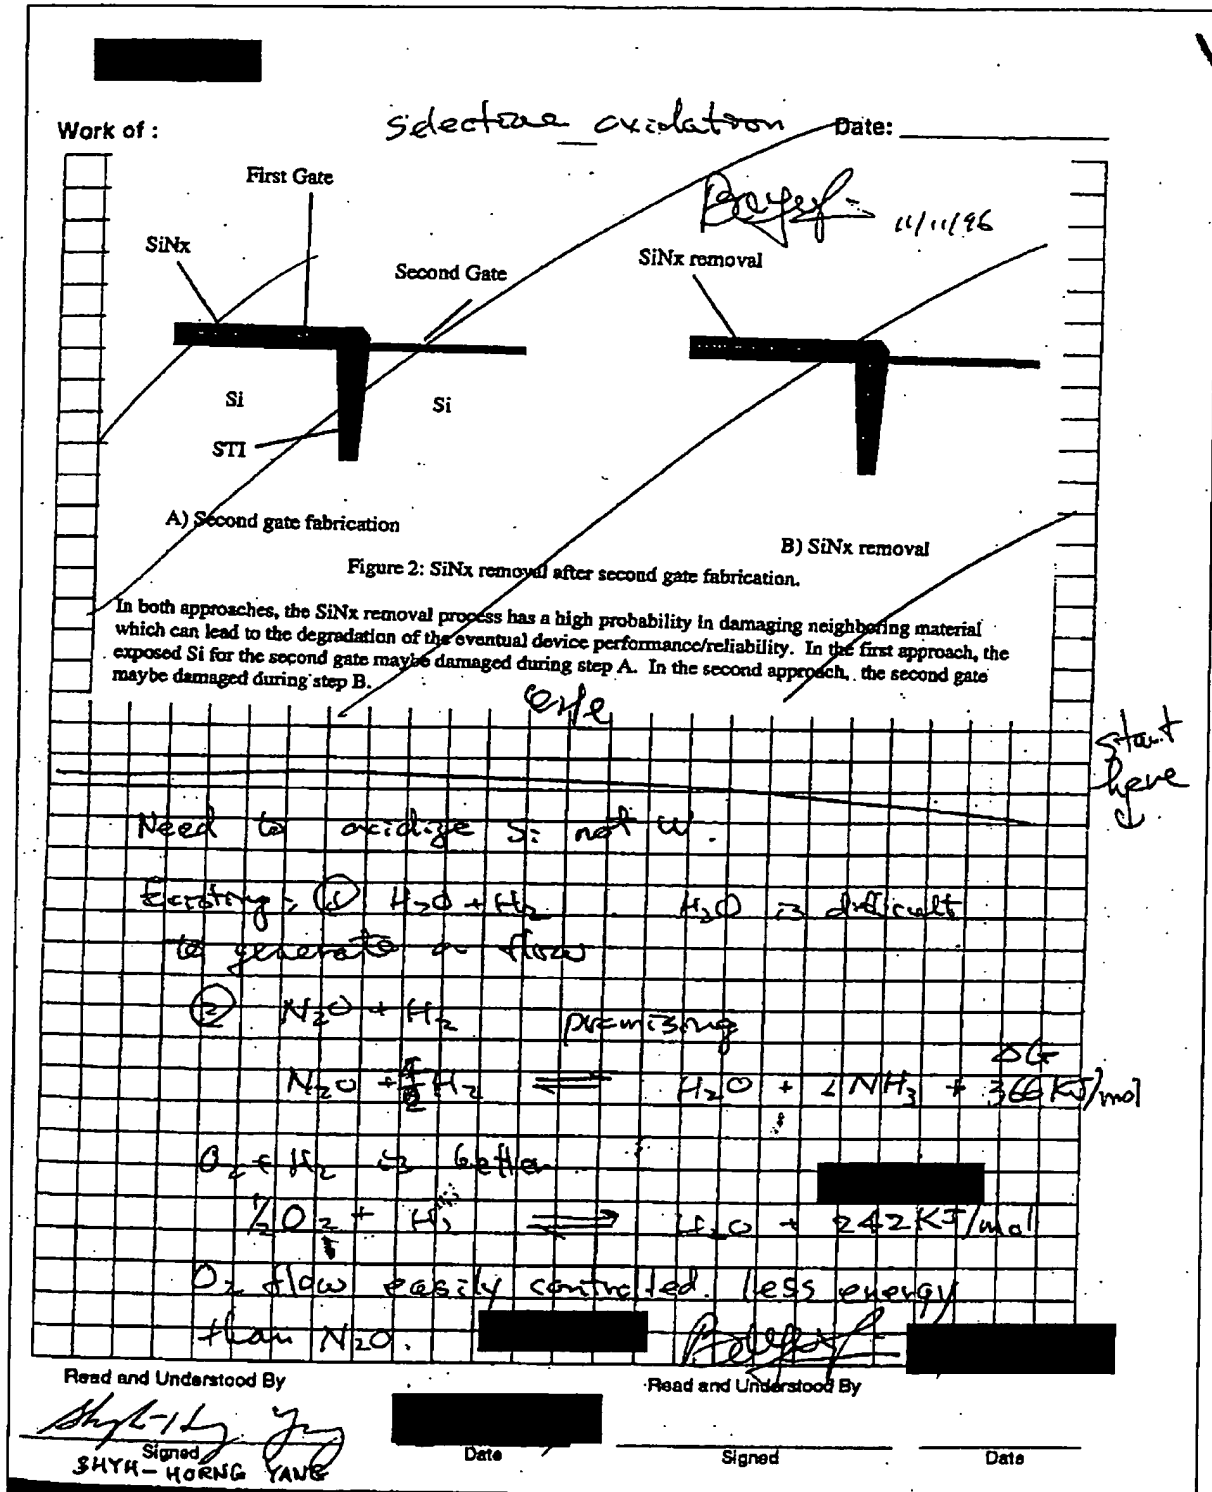 Work of :
selective oxidation
Date:
11/11/96
First Gate
SiNx
Second Gate
SiNx removal
Si
Si
STI
A) Second gate fabrication
B) SiNx removal
Figure 2: SiNx removal after second gate fabrication.
In both approaches, the SiNx removal process has a high probability in damaging neighboring material
which can lead to the degradation of the eventual device performance/reliability. In the first approach, the
exposed Si for the second gate maybe damaged during step A. In the second approach, the second gate
maybe damaged during step B.
start
here
Need to oxidize Si not W.
Existing: ① H2O + H2 H2O is difficult
to generate a flow
② N2O + H2 promising
ΔG
N2O + H2 ⇌ H2O + 2NH3 + 366 KJ/mol
O2 + H2 is better
1/2O2 + H2 ⇌ H2O + 242 KJ/mol
O2 flow easily controlled. less energy
than N2O.
Read and Understood By
Read and Understood By
Signed
Date
Signed
Date
SHYH-HORNG YANG